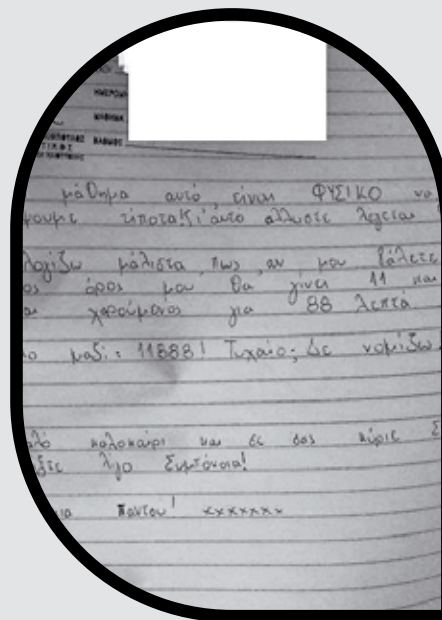 ΗΜΕΡΟΜ
ΜΑΘΗΜΑ
ΒΑΘΜΟΣ
μάθημα αυτό, είναι ΦΥΣΙΚΟ να
τίποτα! Κι αυτό άλλωστε λέγεται
μάλιστα, πως, αν μου βάλετε
όρος μου θα γίνει 11 και
χαρούμενος για 88 λεπτά
μαζί: 11888! Τυχαίο; Δε νομίζω
καλοκαίρι και σε σας κύριε Σ
λίγο Συμπόνοια!
παντού! xxxxxxx